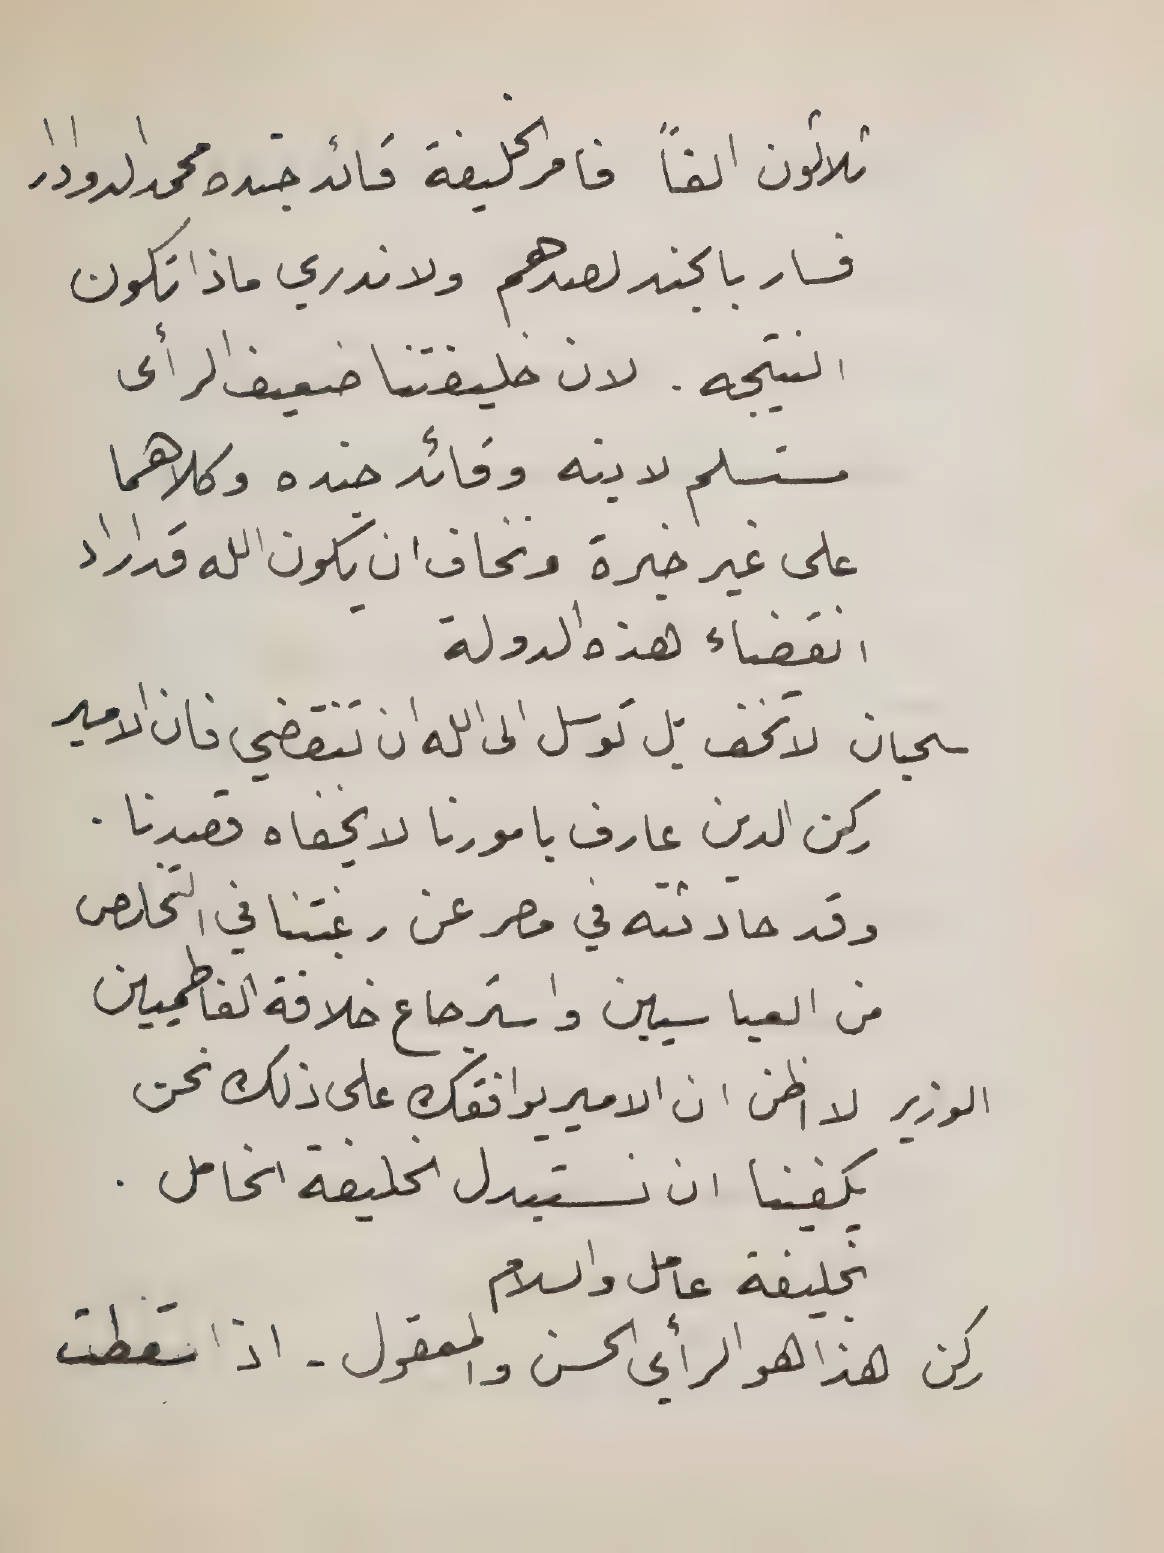 ثلاثون الفاً فامر الخليفة قائد جنده محمد الدوادار
فسار بالجند لصدهم ولا ندري ماذا تكون
النتيجه . لان خليفتنا ضعيف الرأى
مستسلم لابنه وقائد جنده وكلاهما
على غير خبرة ونخاف ان يكون الله قد اراد
انقضاء هذه الدولة
سحبان لا تخف بل توسل الى الله ان تنقضي فان الامير
ركن الدين عارف بامورنا لا يخفاه قصدنا .
وقد حادثته في مصر عن رغبتنا في التخلص
من العباسيين واسترجاع خلافة الفاطميين
الوزير لا اظن ان الامير يوافقك على ذلك نحن
يكفينا ان نستبدل الخليفة الخامل .
بخليفة عامل والسلام
ركن هذا هو الرأي الحسن والمعقول - اذا سقطت